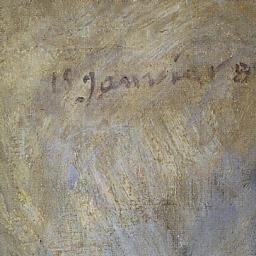 15 Janvier 8